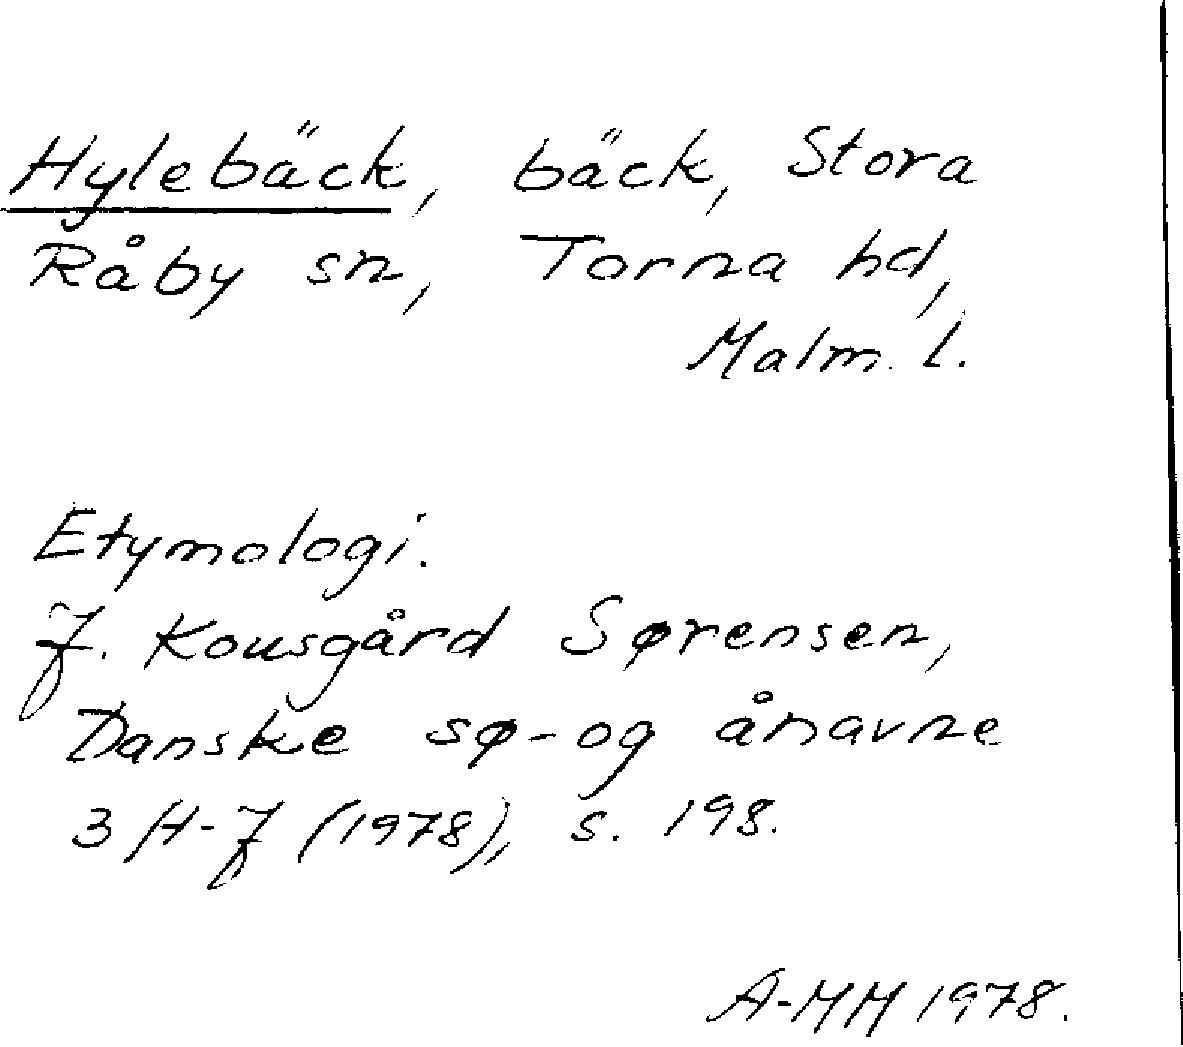 Hylebäck, bäck, Stora
Råby sn, Torna hd,
Malm. l.
Etymologi.
J. Kousgård Sørensen,
Danske sø- og ånavne
3 H-J (1978), s. 198.
A-MM 1978.